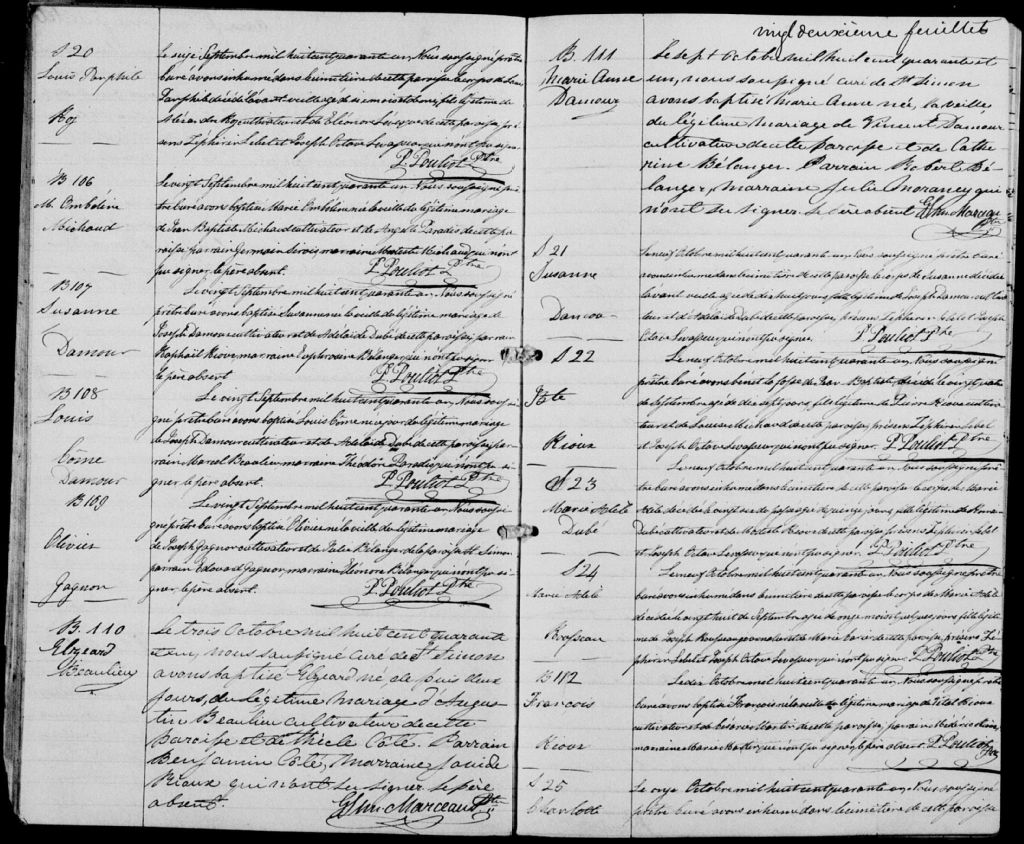 S 20
Louis Pamphile
Roy
Le seize Septembre mil huit cent quarante un, Nous soussigné prêtre
curé avons inhumé dans le cimetière de cette paroisse le corps de Louis
Pamphile décédé l'avant veille agé de six mois et demi, fils légitime de
Roy cultivateur et de Eléonore Levesque de cette paroisse pré-
sens Zéphirin Lebel et Joseph Octave Levasseur qui n'ont pu signer
P. Pouliot Ptre
B 106
M. Ombeline
Michaud
Le vingt Septembre mil huit cent quarante un. Nous soussigné prê-
tre curé avons baptisé Marie Ombeline née la veille de légitime mariage
de Jean Baptiste Michaud cultivateur et de Angèle Paradis de cette pa-
roisse parrain Germain Sirois marraine Modeste Michaud qui n'ont
pu signer le père absent. P. Pouliot Ptre
B 107
Susanne
Damour
Le vingt Septembre mil huit cent quarante un. Nous soussigné
prêtre curé avons baptisé Susanne née la veille de légitime mariage de
Joseph Damour cultivateur et de Adelaïde Dubé de cette paroisse parrain
Raphaël Rioux marraine Euphrosine Bélanger qui n'ont pu signer
le père absent P. Pouliot Ptre
B 108
Louis
Côme
Damour
Le vingt Septembre mil huit cent quarante un. Nous soussi-
gné prêtre curé avons baptisé Louis Côme né ce jour de légitime mariage
de Joseph Damour cultivateur et de Adelaïde Dubé de cette paroisse par-
rain Marcel Beaulieu marraine Théodore Paradis qui n'ont pu si-
gner le père absent. P. Pouliot Ptre
B 109
Olivier
Gagnon
Le vingt Septembre mil huit cent quarante un Nous soussi-
gné prêtre curé avons baptisé Olivier né la veille de légitime mariage
de Joseph Gagnon cultivateur et de Julie Bélanger de la paroisse St Simon
parrain Edouard Gagnon marraine Eléonore Bélanger qui n'ont pu si-
gner, le père absent. P. Pouliot Ptre
B. 110
Elzéard
Beaulieu
Le trois Octobre mil huit cent quarante
et un, nous soussigné curé de St Simon
avons baptisé Elzéard né, de puis deux
jours, du légitime mariage d'Augus-
tin Beaulieu cultivateur de cette
paroisse et de Thècle Coté. Parrain
Benjamin Coté, marraine Louise de
Rioux qui n'ont su signer le père
absent. Marceau Ptre
vingt deuxième feuillet
B. 111
Marie Anne
Damour
Le sept Octobre mil huit cent quarante et
un, nous soussigné curé de St Simon
avons baptisé Marie Anne née, la veille
du légitime mariage de Vincent Damour
cultivateur de cette paroisse et de Cathe
rine Bélanger. Parrain Robert Bé-
langer, marraine Julie Morancy qui
n'ont su signer. Le père absent Marceau
Ptre
S 21
Susanne
Damour
Le neuf Octobre mil huit cent quarante un. Nous soussigné prêtre curé
avons inhumé dans le cimetière de cette paroisse le corps de Susanne décédée
l'avant veille agée de dix huit jours fille légitime de Joseph Damour cultiva
teur et d'Adelaïde Dubé de cette paroisse, présens Zéphirin Lebel et Joseph
Octave Levasseur qui n'ont pu signer. P. Pouliot Ptre
S 22
J Bte
Rioux
Le neuf Octobre mil huit cent quarante un. Nous soussigné
prêtre curé avons bénit la fosse de Jean Baptiste décédé le vingt quatre
de Septembre agé de dix sept jours fils légitime de Rioux cultiva
teur et de Louise Michaud de cette paroisse, présens Zéphirin Lebel
et Joseph Octave Levasseur qui n'ont pu signer. P. Pouliot Ptre
S 23
Marie Adele
Dubé
Le neuf Octobre mil huit cent quarante un Nous soussigné prê-
tre curé avons inhumé dans le cimetière de cette paroisse le corps de Marie
Adele décédée de passage de quinze jours fille légitime de
Dubé cultivateur et de Modeste Rioux de cette paroisse, présens Zéphirin Lebel
et Joseph Octave Levasseur qui n'ont pu signer. P. Pouliot Ptre
S 24
Marie Adele
Rousseau
Le neuf Octobre mil huit cent quarante un. Nous soussigné prêtre
curé avons inhumé dans le cimetière de cette paroisse le corps de Marie Adele
décédée le vingt huit de Septembre agée de onze mois et quelques jours fille légiti
me de Joseph Rousseau et de Marie de cette paroisse, présens Zé-
phirin Lebel et Joseph Octave Levasseur qui n'ont pu signer. P. Pouliot Ptre
B 112
Francois
Rioux
Le dix Octobre mil huit cent quarante un. Nous soussigné prêtre
curé avons baptisé Francois né la veille de légitime mariage de Vital Rioux
cultivateur et de de cette paroisse parrain
marraine Marie qui n'ont pu signer, le père absent. P. Pouliot Ptre
S 25
Charlotte
Le onze Octobre mil huit cent quarante un. Nous soussigné
prêtre curé avons inhumé dans le cimetière de cette paroisse